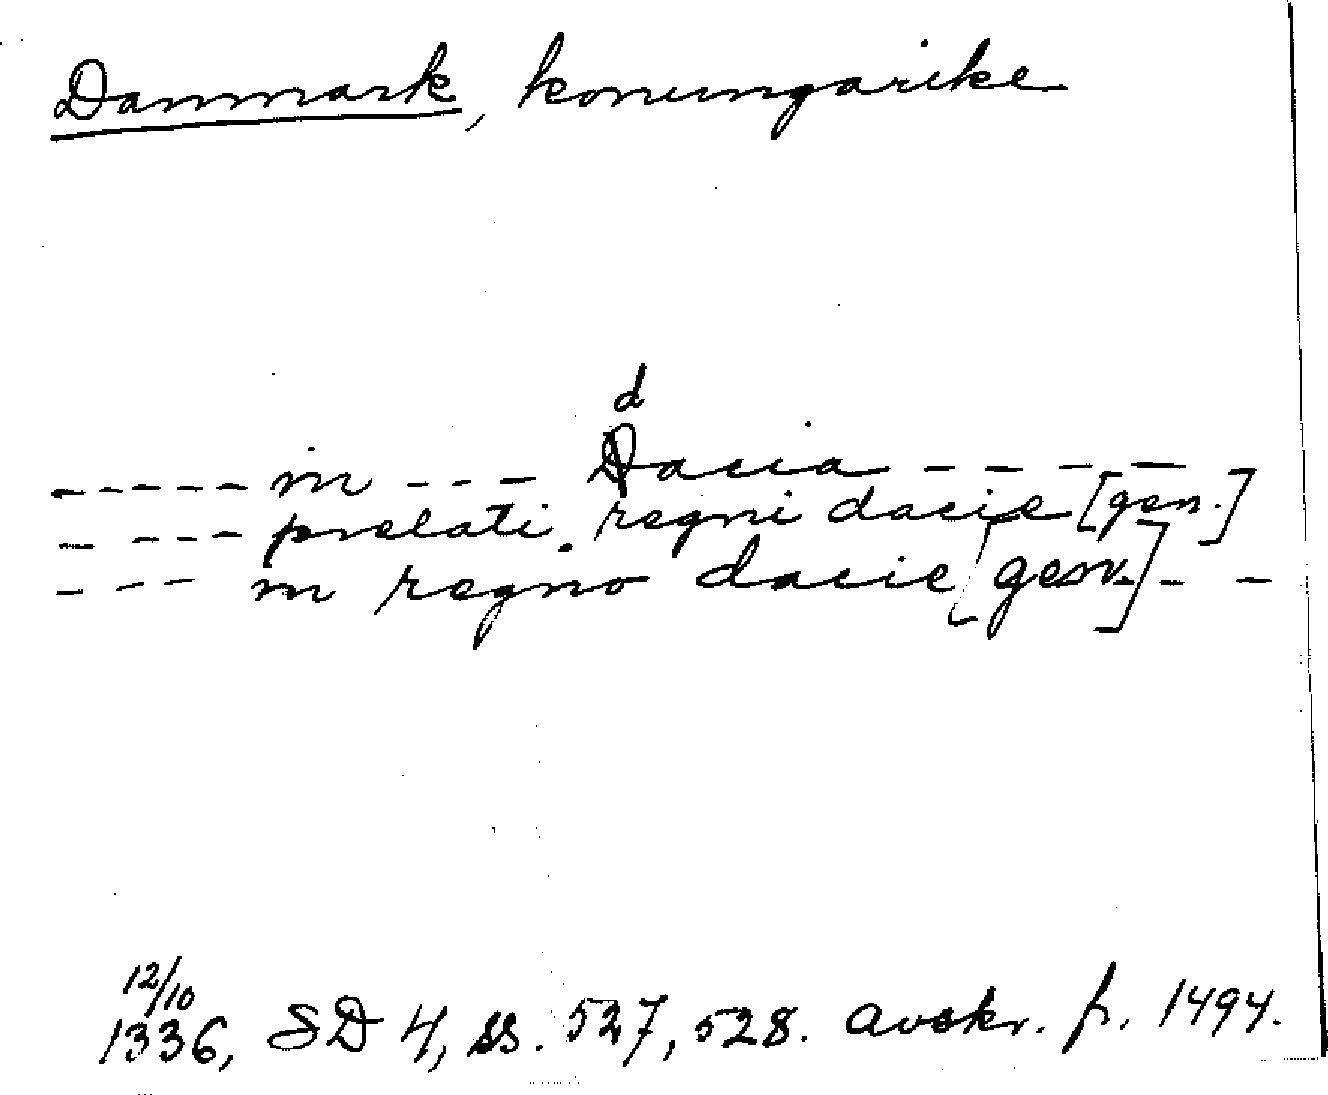 Danmark, konungarike
d
----- in --- Dacia -----
- --- prelati. regni dacie [gen.]
--- in regno dacie [gen.] - -
12/10
1336, SD 4, ss. 527, 528. avskr. fr. 1494.